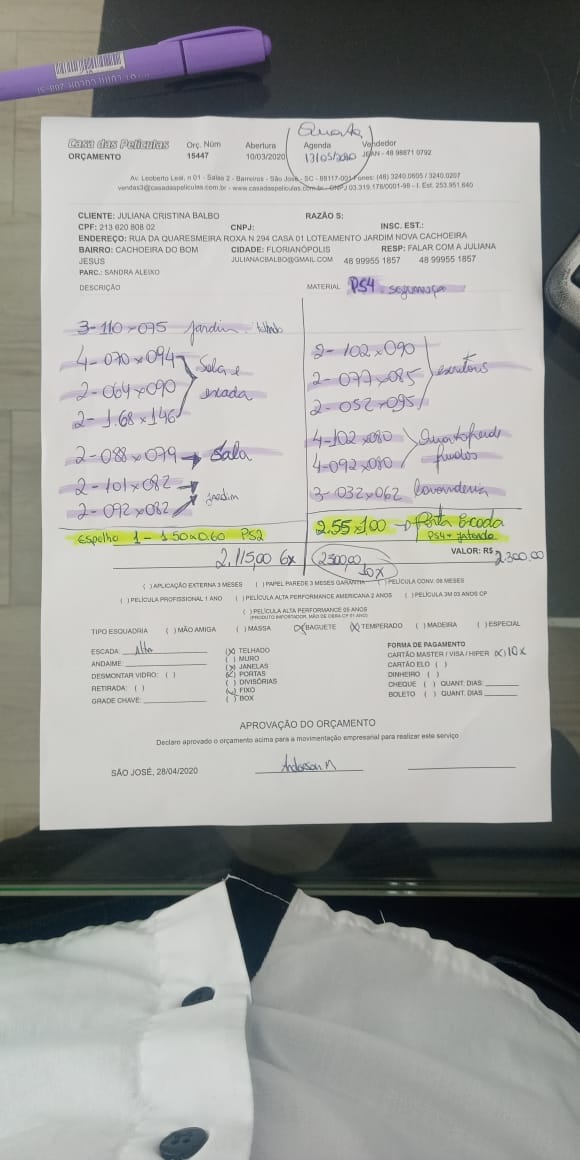 Quarta
Casa das Películas Orç. Núm Abertura Agenda Vendedor
ORÇAMENTO 15447 10/03/2020 13/05/2020 JEAN - 48 98871 0792
Av. Leoberto Leal, n 01 - Salas 2 - Barreiros - São José - SC - 88117-001 Fones: (48) 3240.0605 / 3240.0207
vendas3@casadaspeliculas.com.br - www.casadaspeliculas.com.br - CNPJ 03.319.176/0001-98 - I. Est. 253.951.640
CLIENTE: JULIANA CRISTINA BALBO RAZÃO S:
CPF: 213 620 808 02 CNPJ: INSC. EST.:
ENDEREÇO: RUA DA QUARESMEIRA ROXA N 294 CASA 01 LOTEAMENTO JARDIM NOVA CACHOEIRA
BAIRRO: CACHOEIRA DO BOM CIDADE: FLORIANÓPOLIS RESP: FALAR COM A JULIANA
JESUS JULIANACBALBO@GMAIL.COM 48 99955 1857 48 99955 1857
PARC.: SANDRA ALEIXO
DESCRIÇÃO MATERIAL PS4 segurança
3-110-075 Jardin
4-070x094 Sala e
2-064x090 escada
2-1.68x146
2-088x079 → Sala
2-101x082 →
2-092x082 Jardim
2-102x090
2-077x085 escritório
2-052x095
4-102x080
4-092x080 fundos
3-032x062 lavanderia
Espelho 1-1.50x0.60 PS2
2.55x100 → Porta Escada
PS4+ Jateado
2.115,00 6x 2300,00 VALOR: R$ 2.300,00
10x
( ) APLICAÇÃO EXTERNA 3 MESES ( ) PAPEL PAREDE 3 MESES GARANTIA ( ) PELÍCULA CONV. 06 MESES
( ) PELÍCULA PROFISSIONAL 1 ANO ( ) PELÍCULA ALTA PERFORMANCE AMERICANA 2 ANOS ( ) PELÍCULA 3M 03 ANOS CP
( ) PELÍCULA ALTA PERFORMANCE 05 ANOS
(PRODUTO IMPORTADOR, MÃO DE OBRA CP 01 ANO)
TIPO ESQUADRIA ( ) MÃO AMIGA ( ) MASSA (X) BAGUETE (X) TEMPERADO ( ) MADEIRA ( ) ESPECIAL
ESCADA: Alta
ANDAIME:
DESMONTAR VIDRO: ( )
RETIRADA: ( )
GRADE CHAVE:
(X) TELHADO
( ) MURO
(X) JANELAS
(X) PORTAS
( ) DIVISÓRIAS
(X) FIXO
( ) BOX
FORMA DE PAGAMENTO
CARTÃO MASTER / VISA / HIPER (X) 10x
CARTÃO ELO ( )
DINHEIRO ( )
CHEQUE ( ) QUANT. DIAS
BOLETO ( ) QUANT. DIAS
APROVAÇÃO DO ORÇAMENTO
Declaro aprovado o orçamento acima para a movimentação empresarial para realizar este serviço
SÃO JOSÉ, 28/04/2020 Anderson M